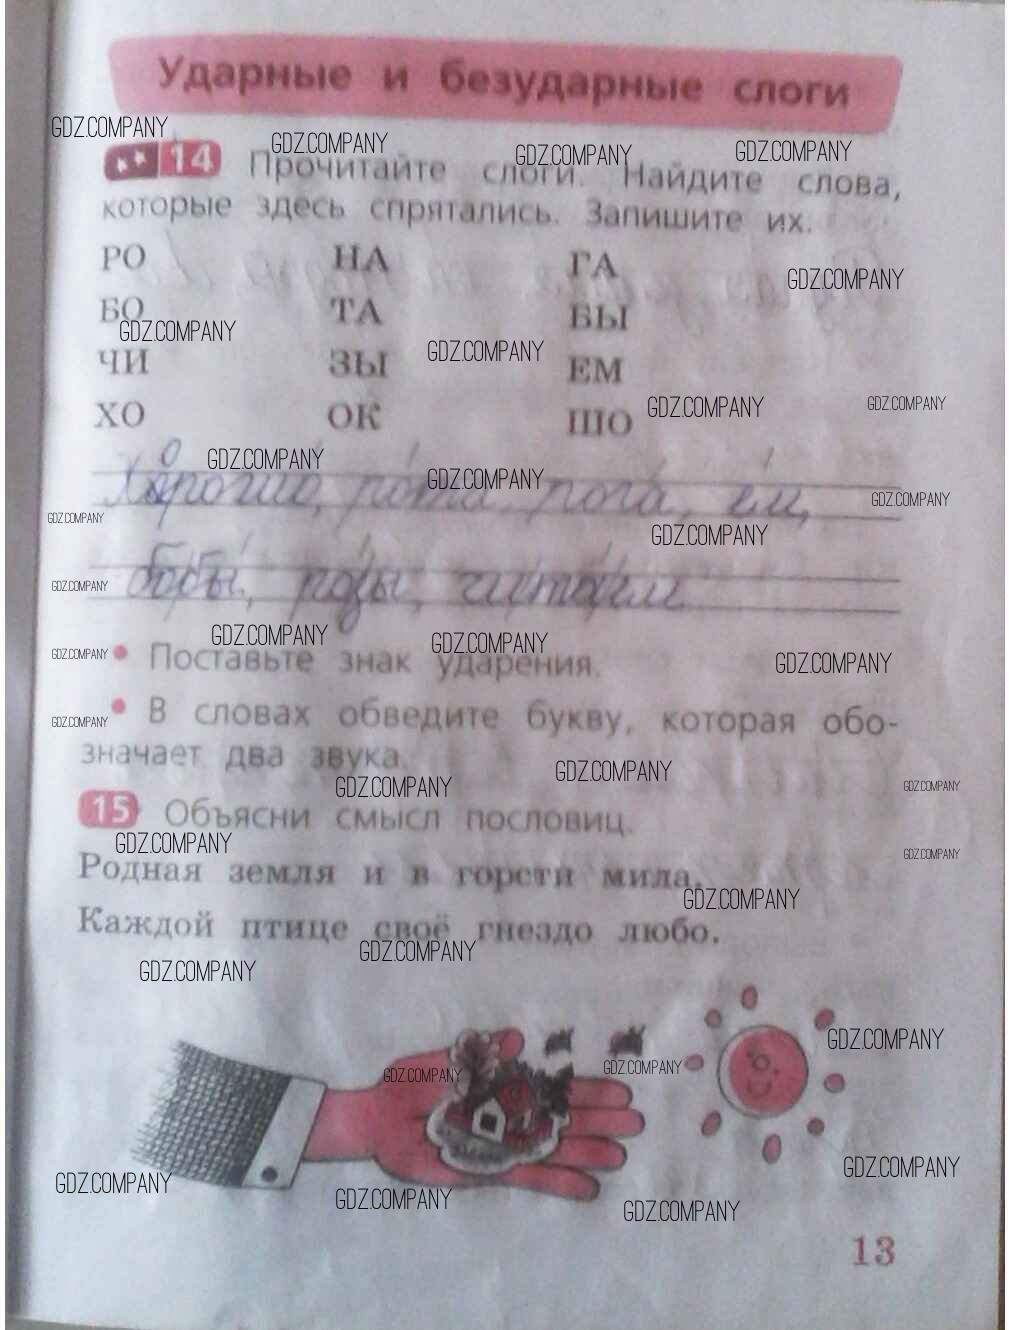 Ударные и безударные слоги
GDZ.COMPANY GDZ.COMPANY GDZ.COMPANY GDZ.COMPANY
14 Прочитайте слоги. Найдите слова,
которые здесь спрятались. Запишите их.
РО НА ГА
GDZ.COMPANY
БО ТА БЫ
GDZ.COMPANY GDZ.COMPANY
ЧИ ЗЫ ЕМ
GDZ.COMPANY GDZ.COMPANY
ХО ОК ШО
GDZ.COMPANY GDZ.COMPANY GDZ.COMPANY
Хорошо, рота, рога, ем,
GDZ.COMPANY GDZ.COMPANY
бобы, розы, читаем
GDZ.COMPANY
GDZ.COMPANY GDZ.COMPANY GDZ.COMPANY GDZ.COMPANY
• Поставьте знак ударения.
• В словах обведите букву, которая обо-
GDZ.COMPANY
значает два звука.
GDZ.COMPANY GDZ.COMPANY GDZ.COMPANY
15 Объясни смысл пословиц.
GDZ.COMPANY GDZ.COMPANY
Родная земля и в горсти мила.
GDZ.COMPANY
Каждой птице своё гнездо любо.
GDZ.COMPANY GDZ.COMPANY
GDZ.COMPANY GDZ.COMPANY GDZ.COMPANY
GDZ.COMPANY GDZ.COMPANY GDZ.COMPANY GDZ.COMPANY
13